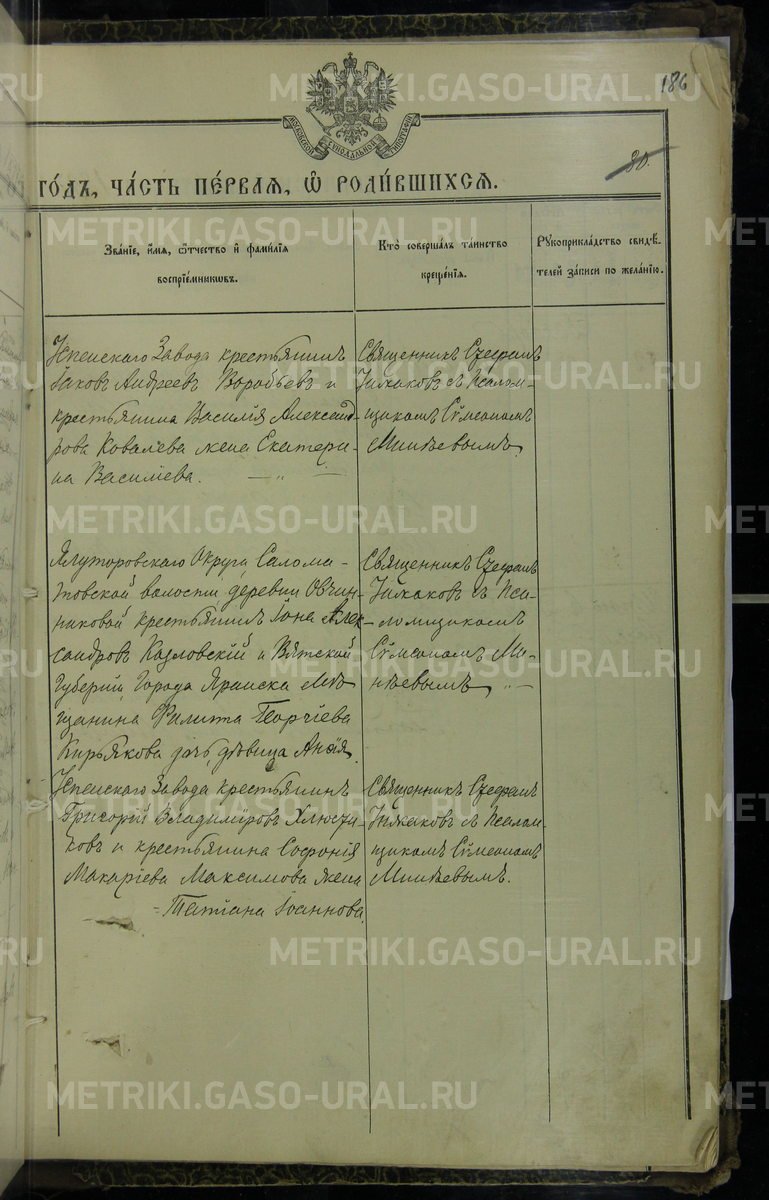 186
МОСКОВСКОЙ СѴНОДАЛЬНОЙ ТИПОГРАФІИ
80.
ГО́ДЪ, ЧА́СТЬ ПЕ́РВАЯ, Ѡ҆ РОДИ́ВШИХСЯ.
Зва́нїе, и҆́мѧ, ѻ҆́тчество и҆ фами́лїѧ
воспрїе́мникѡвъ.
Кто̀ соверша́лъ та́инство
креще́нїѧ.
Рꙋкоприкла́дство свидѣ́-
телей за́писи по жела́нїю.
Успенскаго Завода крестьянинъ
Іаковъ Андреевъ Воробьевъ и
крестьянина Василія Александ-
рова Ковалева жена Екатери-
на Васильева.
Священникъ Стефанъ
съ Псалом-
щикомъ Сѵмеономъ
Ялуторовскаго Округа Салома-
товской волости деревни Овчин-
никовой крестьянинъ Іона Алек-
сандровъ Козловскій и Вятской
Губерніи Города Яранска мѣ-
щанина Филипа Георгіева
Кирьякова дочь дѣвица
Священникъ Стефанъ
съ Пса-
ломщикомъ
Сѵмеономъ
Успенскаго Завода крестьянинъ
Григорій Владиміровъ
и крестьянина Софонія
Макаріева Максимова жена
Татіана Іоаннова.
Священникъ Стефанъ
съ Псалом-
щикомъ Сѵмеономъ
METRIKI.GASO-URAL.RU